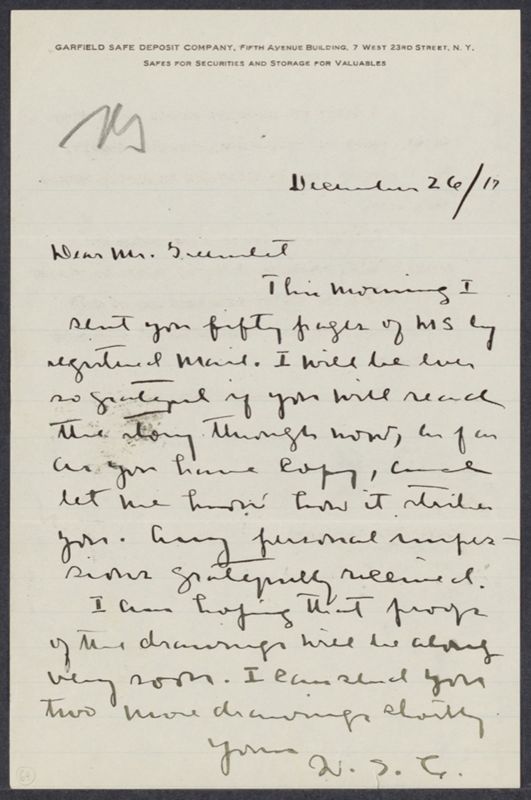 GARFIELD SAFE DEPOSIT COMPANY, FIFTH AVENUE BUILDING, 7 WEST 23RD STREET, N. Y.
SAFES FOR SECURITIES AND STORAGE FOR VALUABLES
December 26/17
Dear Mr. Greenslet
This morning I
sent you fifty pages of MS by
registered mail. I will be ever
so grateful if you will read
the story through now, as far
as you have copy, and
let me know how it strikes
you. Any personal impres-
sions gratefully received.
I am hoping that proofs
of the drawings will be along
very soon. I can send you
two more drawings shortly
Yours
W. S. C.
64